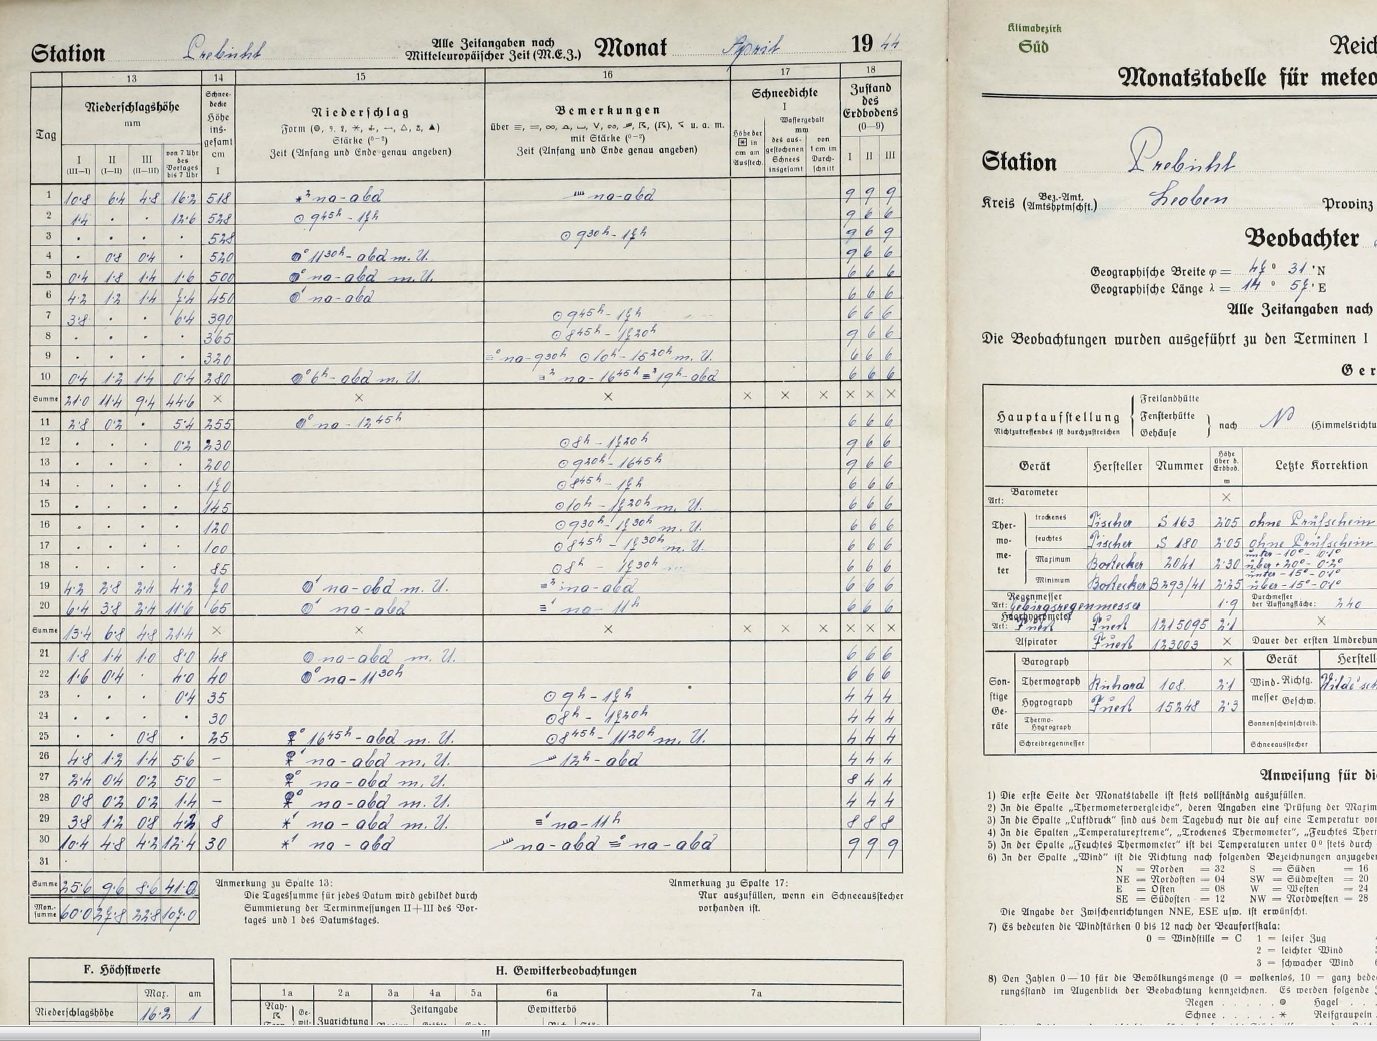 Station Prebichl Alle Zeitangaben nach Mitteleuropäischer Zeit (M.E.Z.) Monat April 1944
13 14 15 16 17 18
Tag
Niederschlagshöhe mm
I (III—I) II (I—II) III (II—III) von 7 Uhr des Vortages bis 7 Uhr
Schneedecke Höhe insgesamt cm I
Niederschlag
Stärke (⁰⁻²)
Zeit (Anfang und Ende genau angeben)
Bemerkungen
mit Stärke (⁰⁻²)
Zeit (Anfang und Ende genau angeben)
Schneedichte
I
Höhe der cm am Ausstech. Wassergehalt mm des ausgestochenen Schnees insgesamt von 1 cm im Durchschnitt
Zustand des Erdbodens (0—9)
I II III
1 10·8 6·4 4·8 16·2 518 *² na-abd na-abd 9 9 9
2 1·4 · · 12·6 528 ⊙ 9⁴⁵ʰ - 17ʰ 9 6 6
3 · · · · 528 ⊙ 9³⁰ʰ - 17ʰ 9 6 9
4 · 0·8 0·4 · 520 11³⁰ʰ - abd m. U. 9 6 6
5 0·4 1·8 1·4 1·6 500 na - abd m. U. 6 6 6
6 4·2 1·2 1·4 7·4 450 na - abd 6 6 6
7 3·8 · · 6·4 390 ⊙ 9⁴⁵ʰ - 17ʰ 6 6 6
8 · · · · 365 ⊙ 8⁴⁵ʰ - 17²⁰ʰ 9 6 6
9 · · · · 320 ≡⁰ na - 9³⁰ʰ ⊙ 10ʰ - 15²⁰ʰ m. U. 6 6 6
10 0·4 1·2 1·4 0·4 280 6ʰ - abd m. U. ≡² na - 16⁴⁵ʰ ≡² 19ʰ - abd 6 6 6
Summe 21·0 11·4 9·4 44·6 × × × × × × × × ×
11 2·8 0·2 · 5·4 255 na - 12⁴⁵ʰ 6 6 6
12 · · · 0·2 230 ⊙ 8ʰ - 17²⁰ʰ 9 6 6
13 · · · · 200 ⊙ 9²⁰ʰ - 16⁴⁵ʰ 9 6 6
14 · · · · 170 ⊙ 8⁴⁵ʰ - 17ʰ 6 6 6
15 · · · · 145 ⊙ 10ʰ - 17²⁰ʰ m. U. 6 6 6
16 · · · · 120 ⊙ 9³⁰ʰ - 17³⁰ʰ m. U. 6 6 6
17 · · · · 100 ⊙ 8⁴⁵ʰ - 17³⁰ʰ m. U. 6 6 6
18 · · · · 85 ⊙ 8ʰ - 17³⁰ʰ 6 6 6
19 4·2 2·8 2·4 4·2 70 na - abd m. U. na-abd 6 6 6
20 6·4 3·8 2·4 11·6 65 na - abd ≡¹ na - 11ʰ 6 6 6
Summe 13·4 6·8 4·8 21·4 × × × × × × × × ×
21 1·8 1·4 1·0 8·0 48 na - abd m. U. 6 6 6
22 1·6 0·4 · 4·0 40 na - 11³⁰ʰ 6 6 6
23 · · · 0·4 35 ⊙ 9ʰ - 17ʰ 4 4 4
24 · · · · 30 ⊙ 8ʰ - 17²⁰ʰ 4 4 4
25 · · 0·8 · 25 16⁴⁵ʰ - abd m. U. ⊙ 8⁴⁵ʰ - 11²⁰ʰ m. U. 4 4 4
26 4·8 1·2 1·4 5·6 – na - abd m. U. 12ʰ - abd 4 4 4
27 2·4 0·4 0·2 5·0 – na - abd m. U. 8 4 4
28 0·8 0·2 0·2 1·4 – na - abd m. U. 4 4 4
29 3·8 1·2 0·8 4·2 8 *¹ na - abd m. U. ≡¹ na - 11ʰ 8 8 8
30 10·4 4·8 4·2 12·4 30 *¹ na - abd na-abd ≡⁰ na - abd 9 9 9
31 ·
Summe 25·6 9·6 8·6 41·0
Mon.-summe 60·0 27·8 22·8 107·0
Anmerkung zu Spalte 13:
Die Tagessumme für jedes Datum wird gebildet durch
Summierung der Terminmessungen II+III des Vor-
tages und I des Datumstages.
Anmerkung zu Spalte 17:
Nur auszufüllen, wenn ein Schneeausstecher
vorhanden ist.
F. Höchstwerte
Max. am
Niederschlagshöhe 16·2 1
H. Gewitterbeobachtungen
1a 2a 3a 4a 5a 6a 7a
Zugrichtung Zeitangabe Gewitterbö
Klimabezirk
Süd
Reich
Monatstabelle für meteo
Station Prebichl
Kreis (Bez.-Amt. Amtshptmschft.) Leoben Provinz
Beobachter
Geographische Breite φ = 47° 31' N
Geographische Länge λ = 14° 57' E
Alle Zeitangaben nach
Die Beobachtungen wurden ausgeführt zu den Terminen I
Ger
Hauptaufstellung
Nichtzutreffendes ist durchzustreichen
Freilandhütte
Fensterhütte
Gehäuse
nach N (Himmelsrichtu
Gerät Hersteller Nummer Höhe über d. Erdbod. m Letzte Korrektion
Barometer Art: ×
Thermometer
trockenes Fischer S 163 2·05 ohne Prüfschein
feuchtes Fischer S 180 2·05 ohne Prüfschein
Maximum Bostecker 2041 2·30 unter -10° -0·1° über +20° -0·2°
Minimum Bostecker B293/41 2·25 unter -15° -0·1° über -15° -0·1°
Regenmesser Art: Gebirgsregenmesser 1·9 Durchmesser der Auffangfläche: 240
Haarhygrometer Art: Fuess Fuess 1215095 2·1 ×
Aspirator Fuess 123003 × Dauer der ersten Umdrehun
Sonstige Geräte
Barograph × Gerät Herstell
Thermograph 108 2·1 Wind-Richtg.
Hygrograph Fuess 15248 2·3 messer Geschw.
Thermo-Hygrograph Sonnenscheinschreib.
Schreibregenmesser Schneeausstecher
Anweisung für di
1) Die erste Seite der Monatstabelle ist stets vollständig auszufüllen.
2) In die Spalte „Thermometervergleiche“, deren Angaben eine Prüfung der Maxim
3) In die Spalte „Luftdruck“ sind aus dem Tagebuch nur die auf eine Temperatur vo
4) In die Spalten „Temperaturextreme“, „Trockenes Thermometer“, „Feuchtes Ther
5) In der Spalte „Feuchtes Thermometer“ ist bei Temperaturen unter 0° stets durch
6) In der Spalte „Wind“ ist die Richtung nach folgenden Bezeichnungen anzugeben
N = Norden = 32 S = Süden = 16
NE = Nordosten = 04 SW = Südwesten = 20
E = Osten = 08 W = Westen = 24
SE = Südosten = 12 NW = Nordwesten = 28
Die Angabe der Zwischenrichtungen NNE, ESE usw. ist erwünscht.
7) Es bedeuten die Windstärken 0 bis 12 nach der Beaufortskala:
0 = Windstille = C 1 = leiser Zug
2 = leichter Wind
3 = schwacher Wind
8) Den Zahlen 0—10 für die Bewölkungsmenge (0 = wolkenlos, 10 = ganz bede
rungsstand im Augenblick der Beobachtung kennzeichnen. Es werden folgende
Regen Hagel
Schnee Reifgraupeln